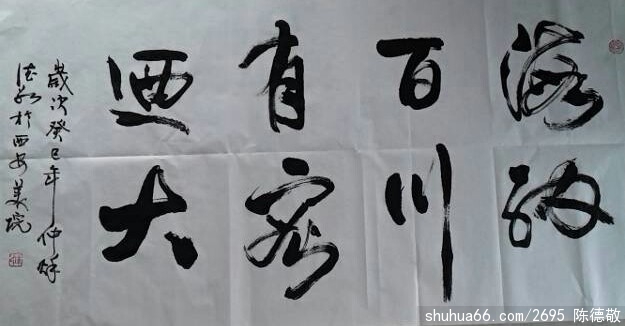 海纳
百川
有容
迺大
歲次癸巳年仲秌
德敬於西安美院
shuhua66.com/2695 陈德敬